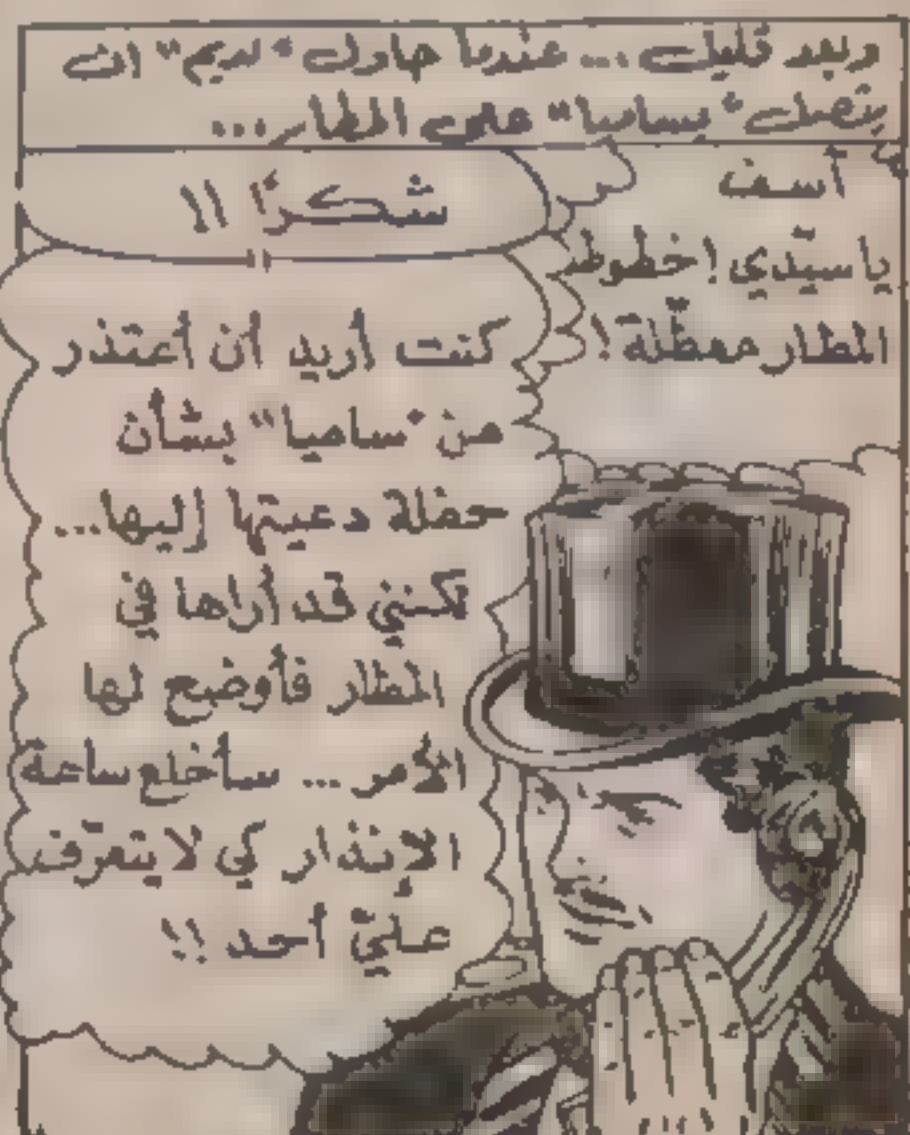 وبعد قليل... عندما حاول "نديم" ان
يتصل "بساميا" على المطار...
آسف
يا سيّدي! خطوط
المطار معطّلة!
شكرًا !!
كنت أريد أن أعتذر
من "ساميا" بشأن
حفلة دعيتها إليها...
لكنني قد أراها في
المطار فأوضح لها
الأمر... سأخلع ساعة
الإنذار كي لا يتعرّف
عليّ أحد !!